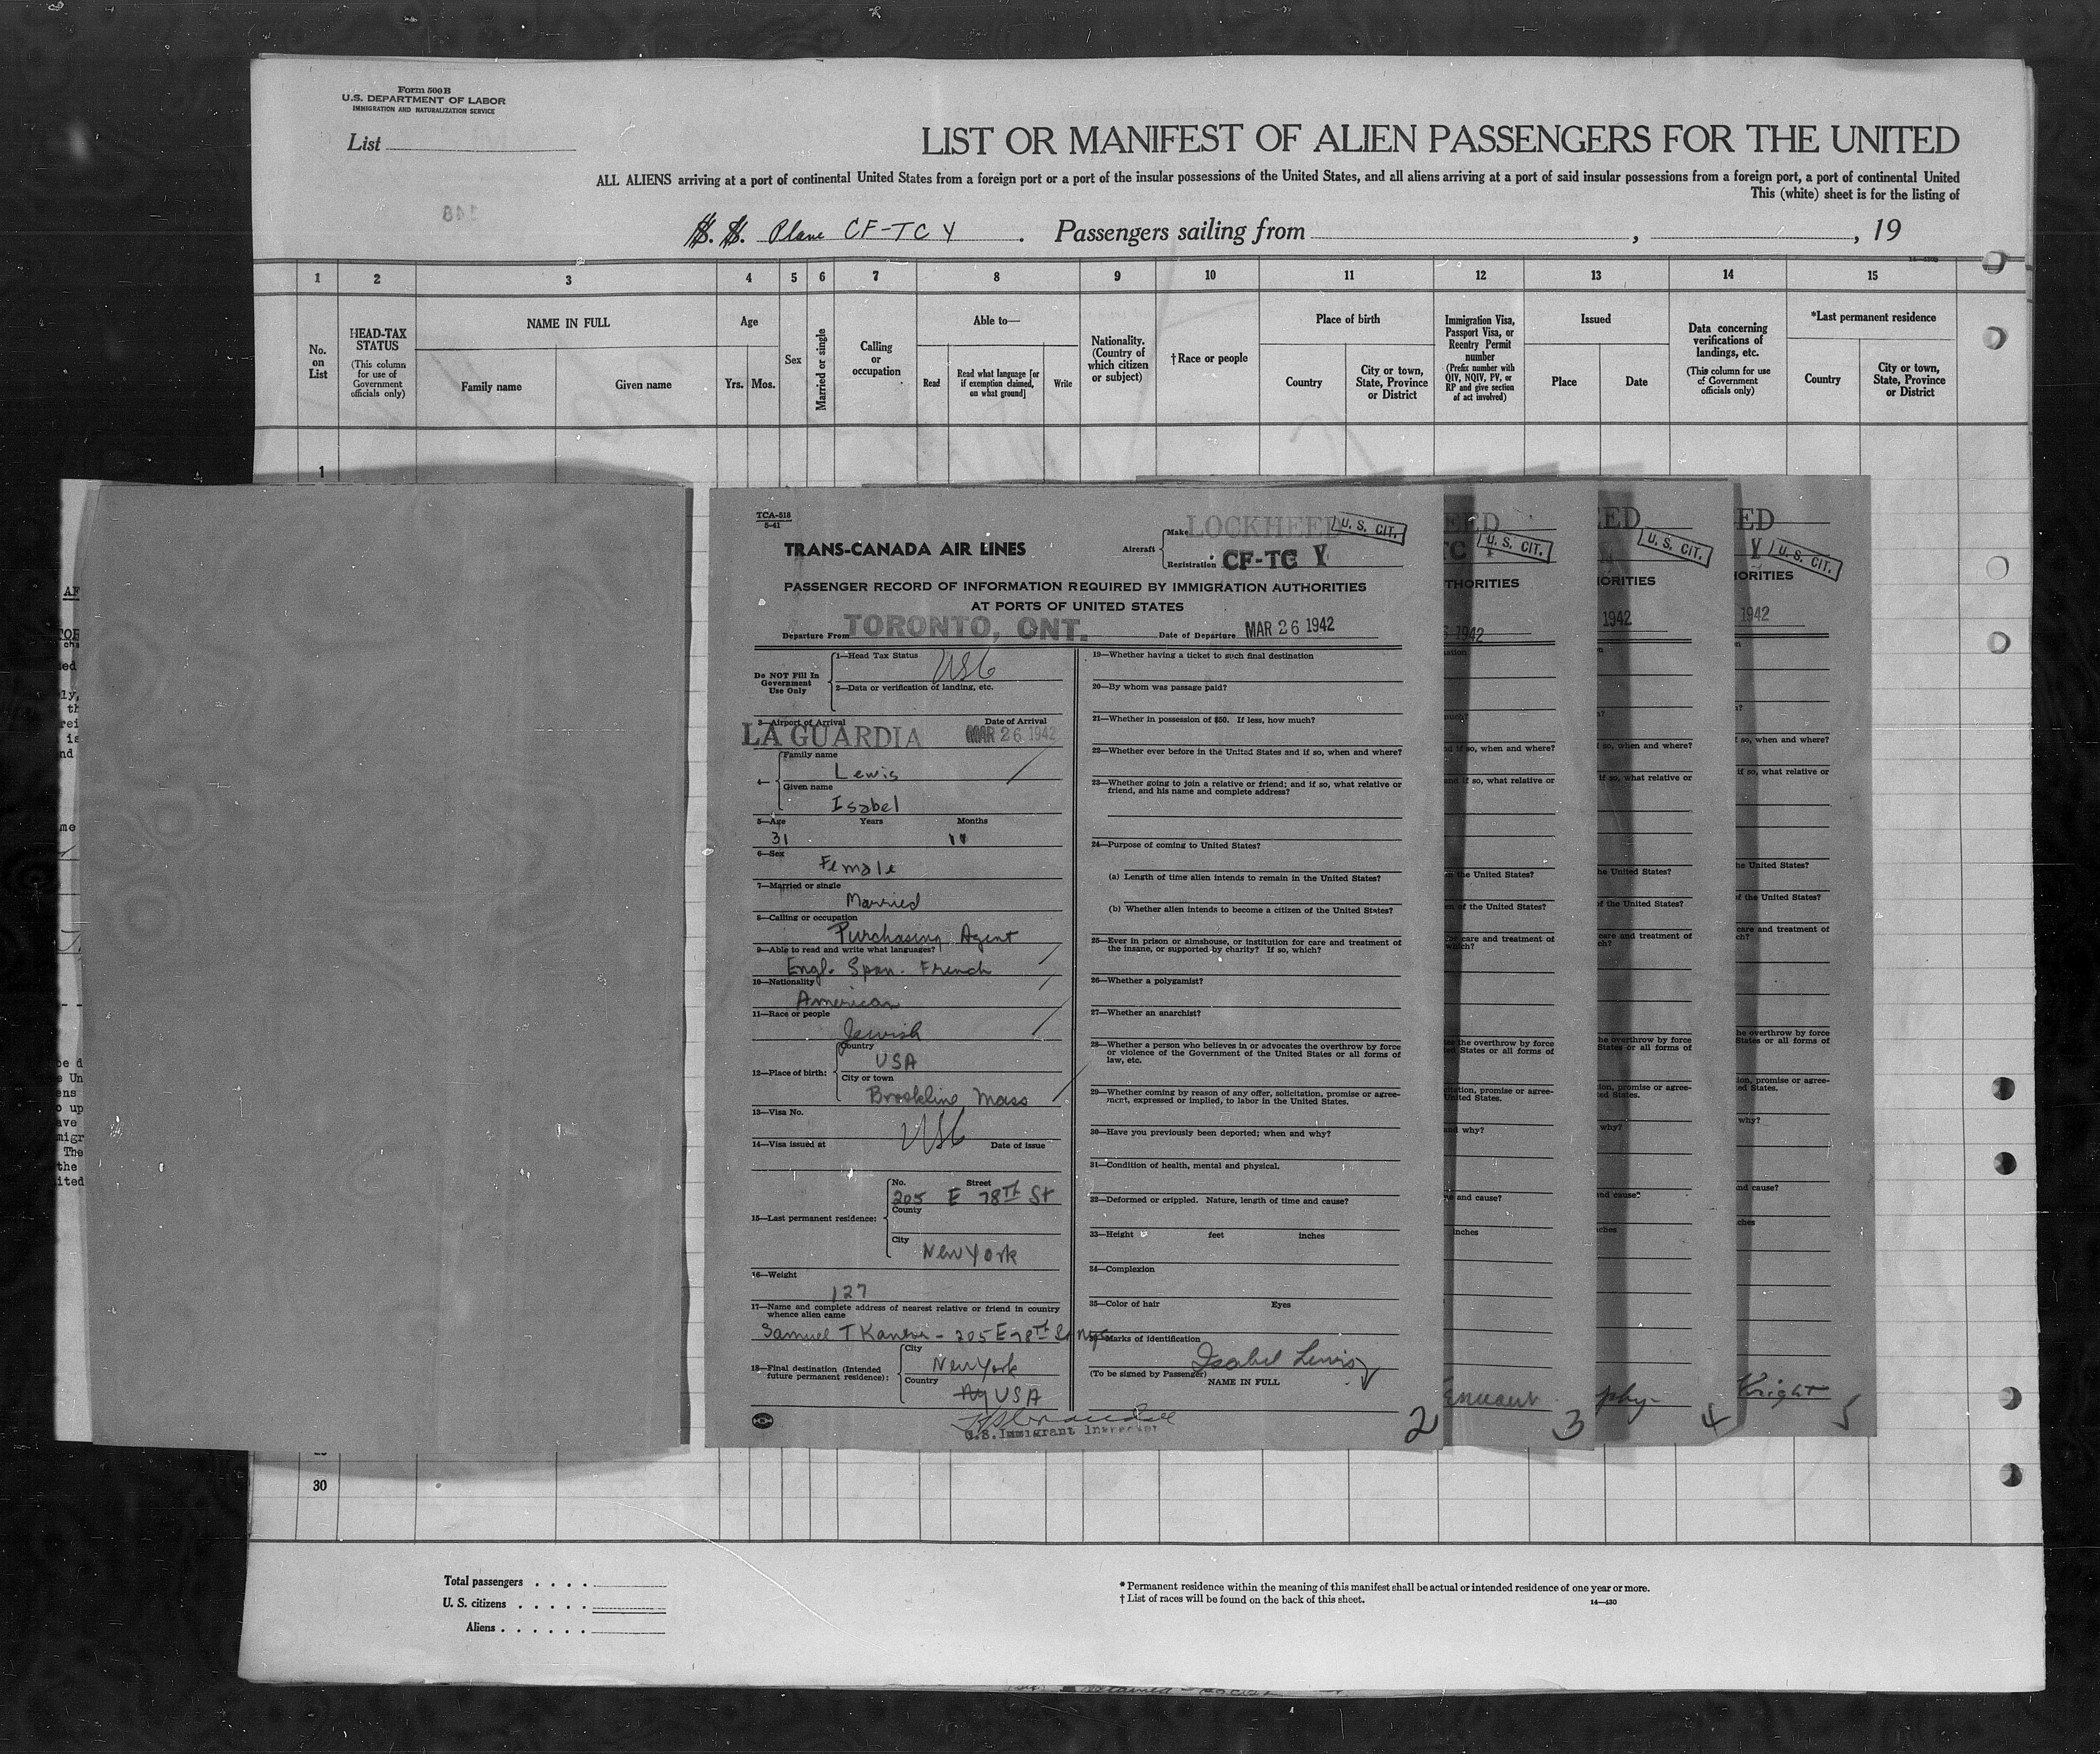 Form 500B
U.S. DEPARTMENT OF LABOR
IMMIGRATION AND NATURALIZATION SERVICE
List
LIST OR MANIFEST OF ALIEN PASSENGERS FOR THE UNITED
ALL ALIENS arriving at a port of continental United States from a foreign port or a port of the insular possessions of the United States, and all aliens arriving at a port of said insular possessions from a foreign port, a port of continental United
This (white) sheet is for the listing of
S. S. Plane CF-TCY . Passengers sailing from , , 19
1 2 3 4 5 6 7 8 9 10 11 12 13 14 15
No. on List
HEAD-TAX STATUS
(This column for use of Government officials only)
NAME IN FULL
Family name
Given name
Age
Yrs. Mos.
Sex
Married or single
Calling or occupation
Able to—
Read
Read what language [or if exemption claimed, on what ground]
Write
Nationality. (Country of which citizen or subject)
†Race or people
Place of birth
Country
City or town, State, Province or District
Immigration Visa, Passport Visa, or Reentry Permit number
(Prefix number with QIV, NQIV, PV, or RP and give section of act involved)
Issued
Place
Date
Data concerning verifications of landings, etc.
(This column for use of Government officials only)
*Last permanent residence
Country
City or town, State, Province or District
1
TCA-518
5-41
TRANS-CANADA AIR LINES
Aircraft
Make LOCKHEED
U. S. CIT.
Registration CF-TC Y
PASSENGER RECORD OF INFORMATION REQUIRED BY IMMIGRATION AUTHORITIES
AT PORTS OF UNITED STATES
Departure From TORONTO, ONT. Date of Departure MAR 26 1942
Do NOT Fill In Government Use Only
1—Head Tax Status USC
2—Data or verification of landing, etc.
3—Airport of Arrival Date of Arrival
LA GUARDIA MAR 26 1942
4—
Family name
Lewis
Given name
Isabel
5—Age Years Months
31 11
6—Sex
Female
7—Married or single
Married
8—Calling or occupation
Purchasing Agent
9—Able to read and write what languages?
Engl. Span. French
10—Nationality
American
11—Race or people
Jewish
12—Place of birth:
Country
USA
City or town
Brookline Mass
13—Visa No.
USC
14—Visa issued at Date of issue
15—Last permanent residence:
No. Street
205 E 78TH St
County
City
New York
16—Weight
127
17—Name and complete address of nearest relative or friend in country whence alien came
Samuel T Kantor - 205 E 78TH St NYC
18—Final destination (Intended future permanent residence):
City
New York
Country
NY USA
U.S. Immigrant Inspector
19—Whether having a ticket to such final destination
20—By whom was passage paid?
21—Whether in possession of $50. If less, how much?
22—Whether ever before in the United States and if so, when and where?
23—Whether going to join a relative or friend; and if so, what relative or friend, and his name and complete address?
24—Purpose of coming to United States?
(a) Length of time alien intends to remain in the United States?
(b) Whether alien intends to become a citizen of the United States?
25—Ever in prison or almshouse, or institution for care and treatment of the insane, or supported by charity? If so, which?
26—Whether a polygamist?
27—Whether an anarchist?
28—Whether a person who believes in or advocates the overthrow by force or violence of the Government of the United States or all forms of law, etc.
29—Whether coming by reason of any offer, solicitation, promise or agreement, expressed or implied, to labor in the United States.
30—Have you previously been deported; when and why?
31—Condition of health, mental and physical.
32—Deformed or crippled. Nature, length of time and cause?
33—Height feet inches
34—Complexion
35—Color of hair Eyes
36—Marks of identification
Isabel Lewis
(To be signed by Passenger)
NAME IN FULL
2
U. S. CIT.
3
U. S. CIT.
1942
4
U. S. CIT.
1942
Knight
5
30
Total passengers . . . .
U. S. citizens . . . . .
Aliens . . . . . .
* Permanent residence within the meaning of this manifest shall be actual or intended residence of one year or more.
† List of races will be found on the back of this sheet.
14—430